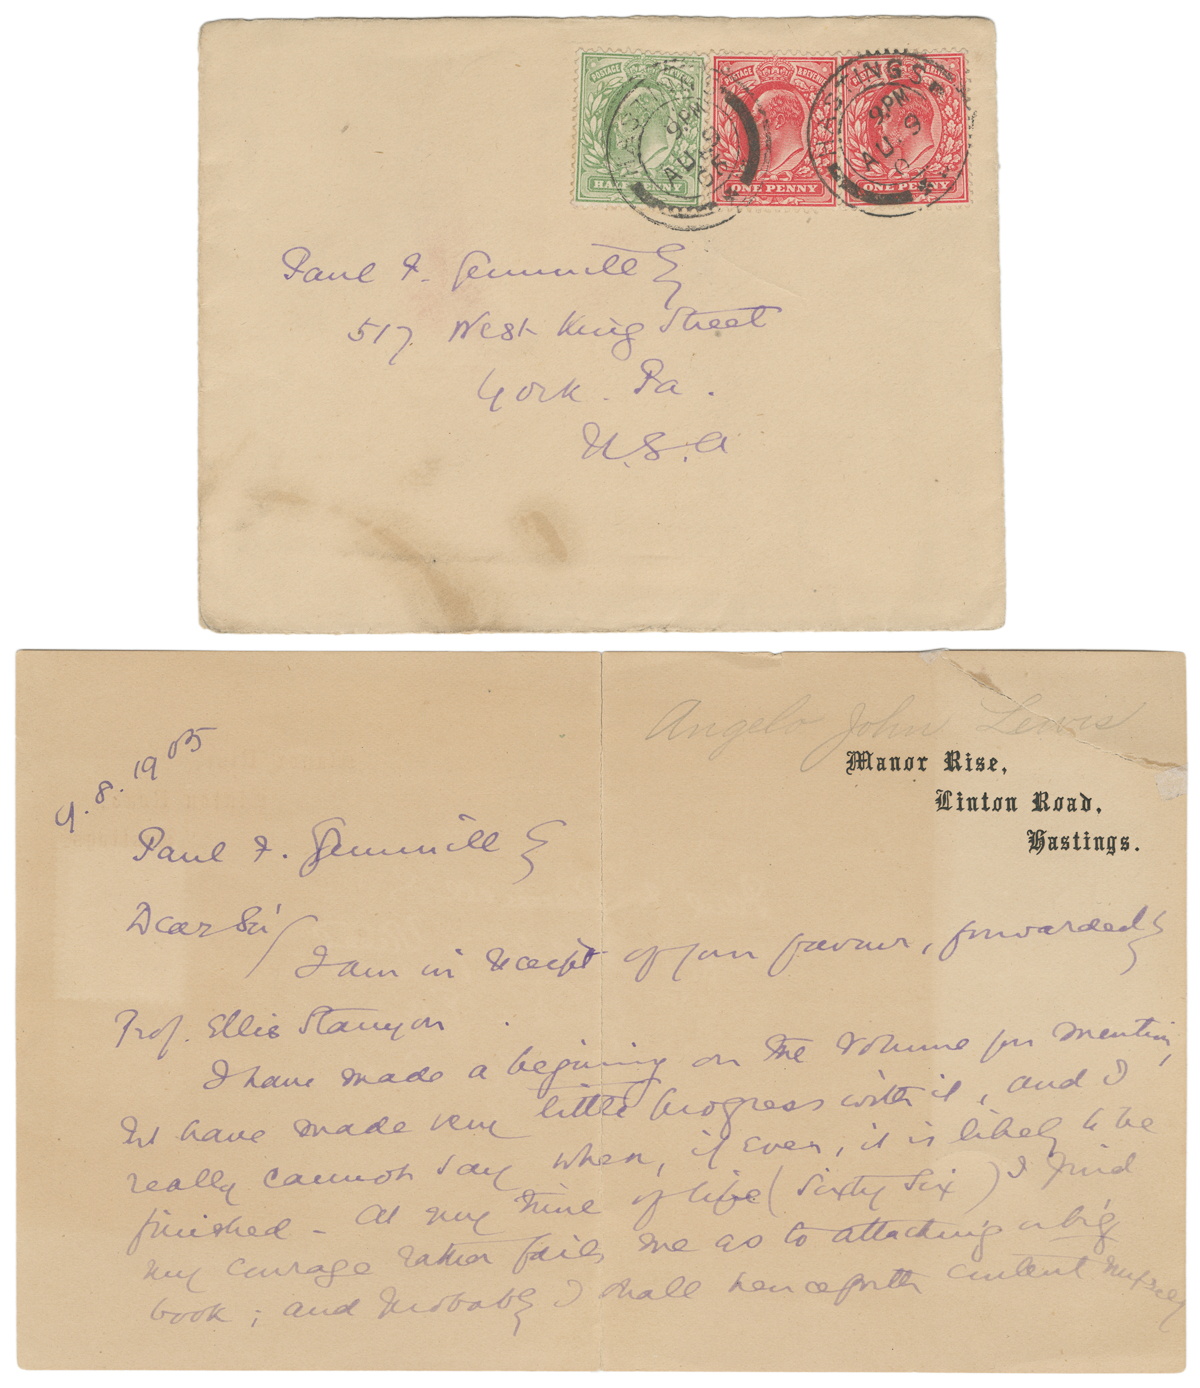 POSTAGE REVENUE
HALF PENNY
POSTAGE & REVENUE
ONE PENNY
POSTAGE & REVENUE
ONE PENNY
HASTINGS
9 PM
AU 9
05
HASTINGS
9 PM
AU 9
Paul F. Gemmill Esq
517. West King Street
York. Pa.
U.S.A
Angelo John Lewis
Manor Rise,
Linton Road,
Hastings.
9.8.1905
Paul F. Gemmill Esq
Dear Sir/
I am in receipt of your favour, forwarded by
Prof. Ellis Stanyon.
I have made a begining on the volume you mention,
but have made very little progress with it, and I
really cannot say when, if ever, it is likely to be
finished - At my time of life (sixty six) I find
my courage rather fails me as to attacking a big
book; and probably I shall henceforth content myself